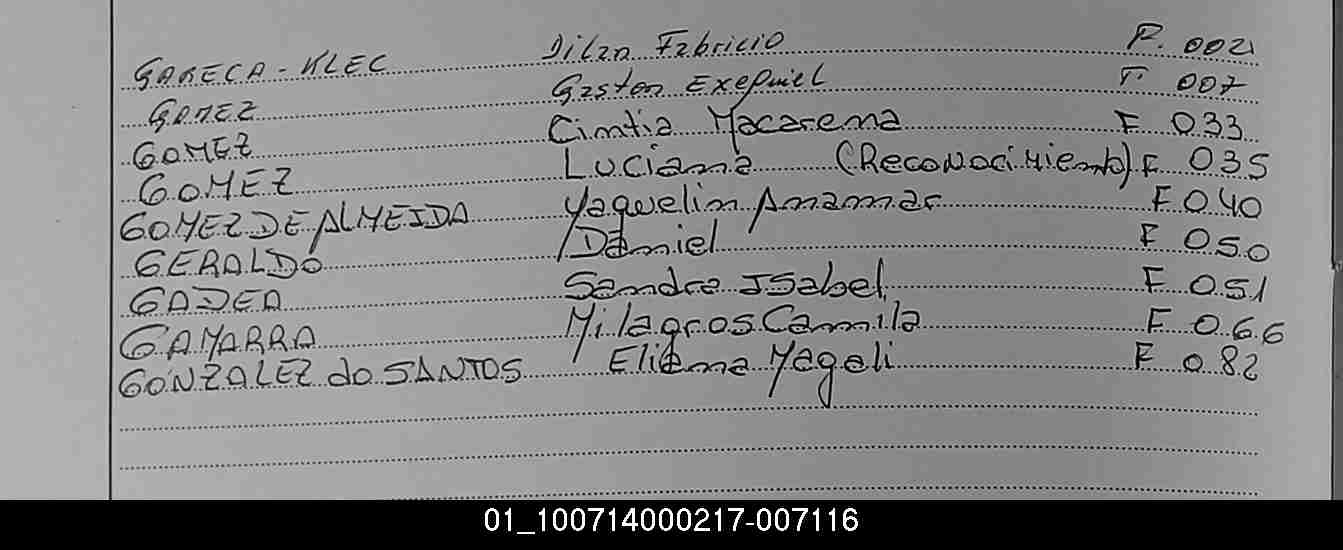 GARECA - KLEC Dilan Fabricio F. 002
GOMEZ Gaston Exequiel F. 007
GOMEZ Cimtia Macarema F 033
GOMEZ Luciama (Reconocimiento) F 035
GOMEZ DE ALMEIDA Yaquelim Anamar F 040
GERALDO Damiel F 050
GADEA Samdra Isabel F 051
GAMARRA Milagros Camila F 066
GONZALEZ do SANTOS Eliama Magali F 082
01_100714000217-007116